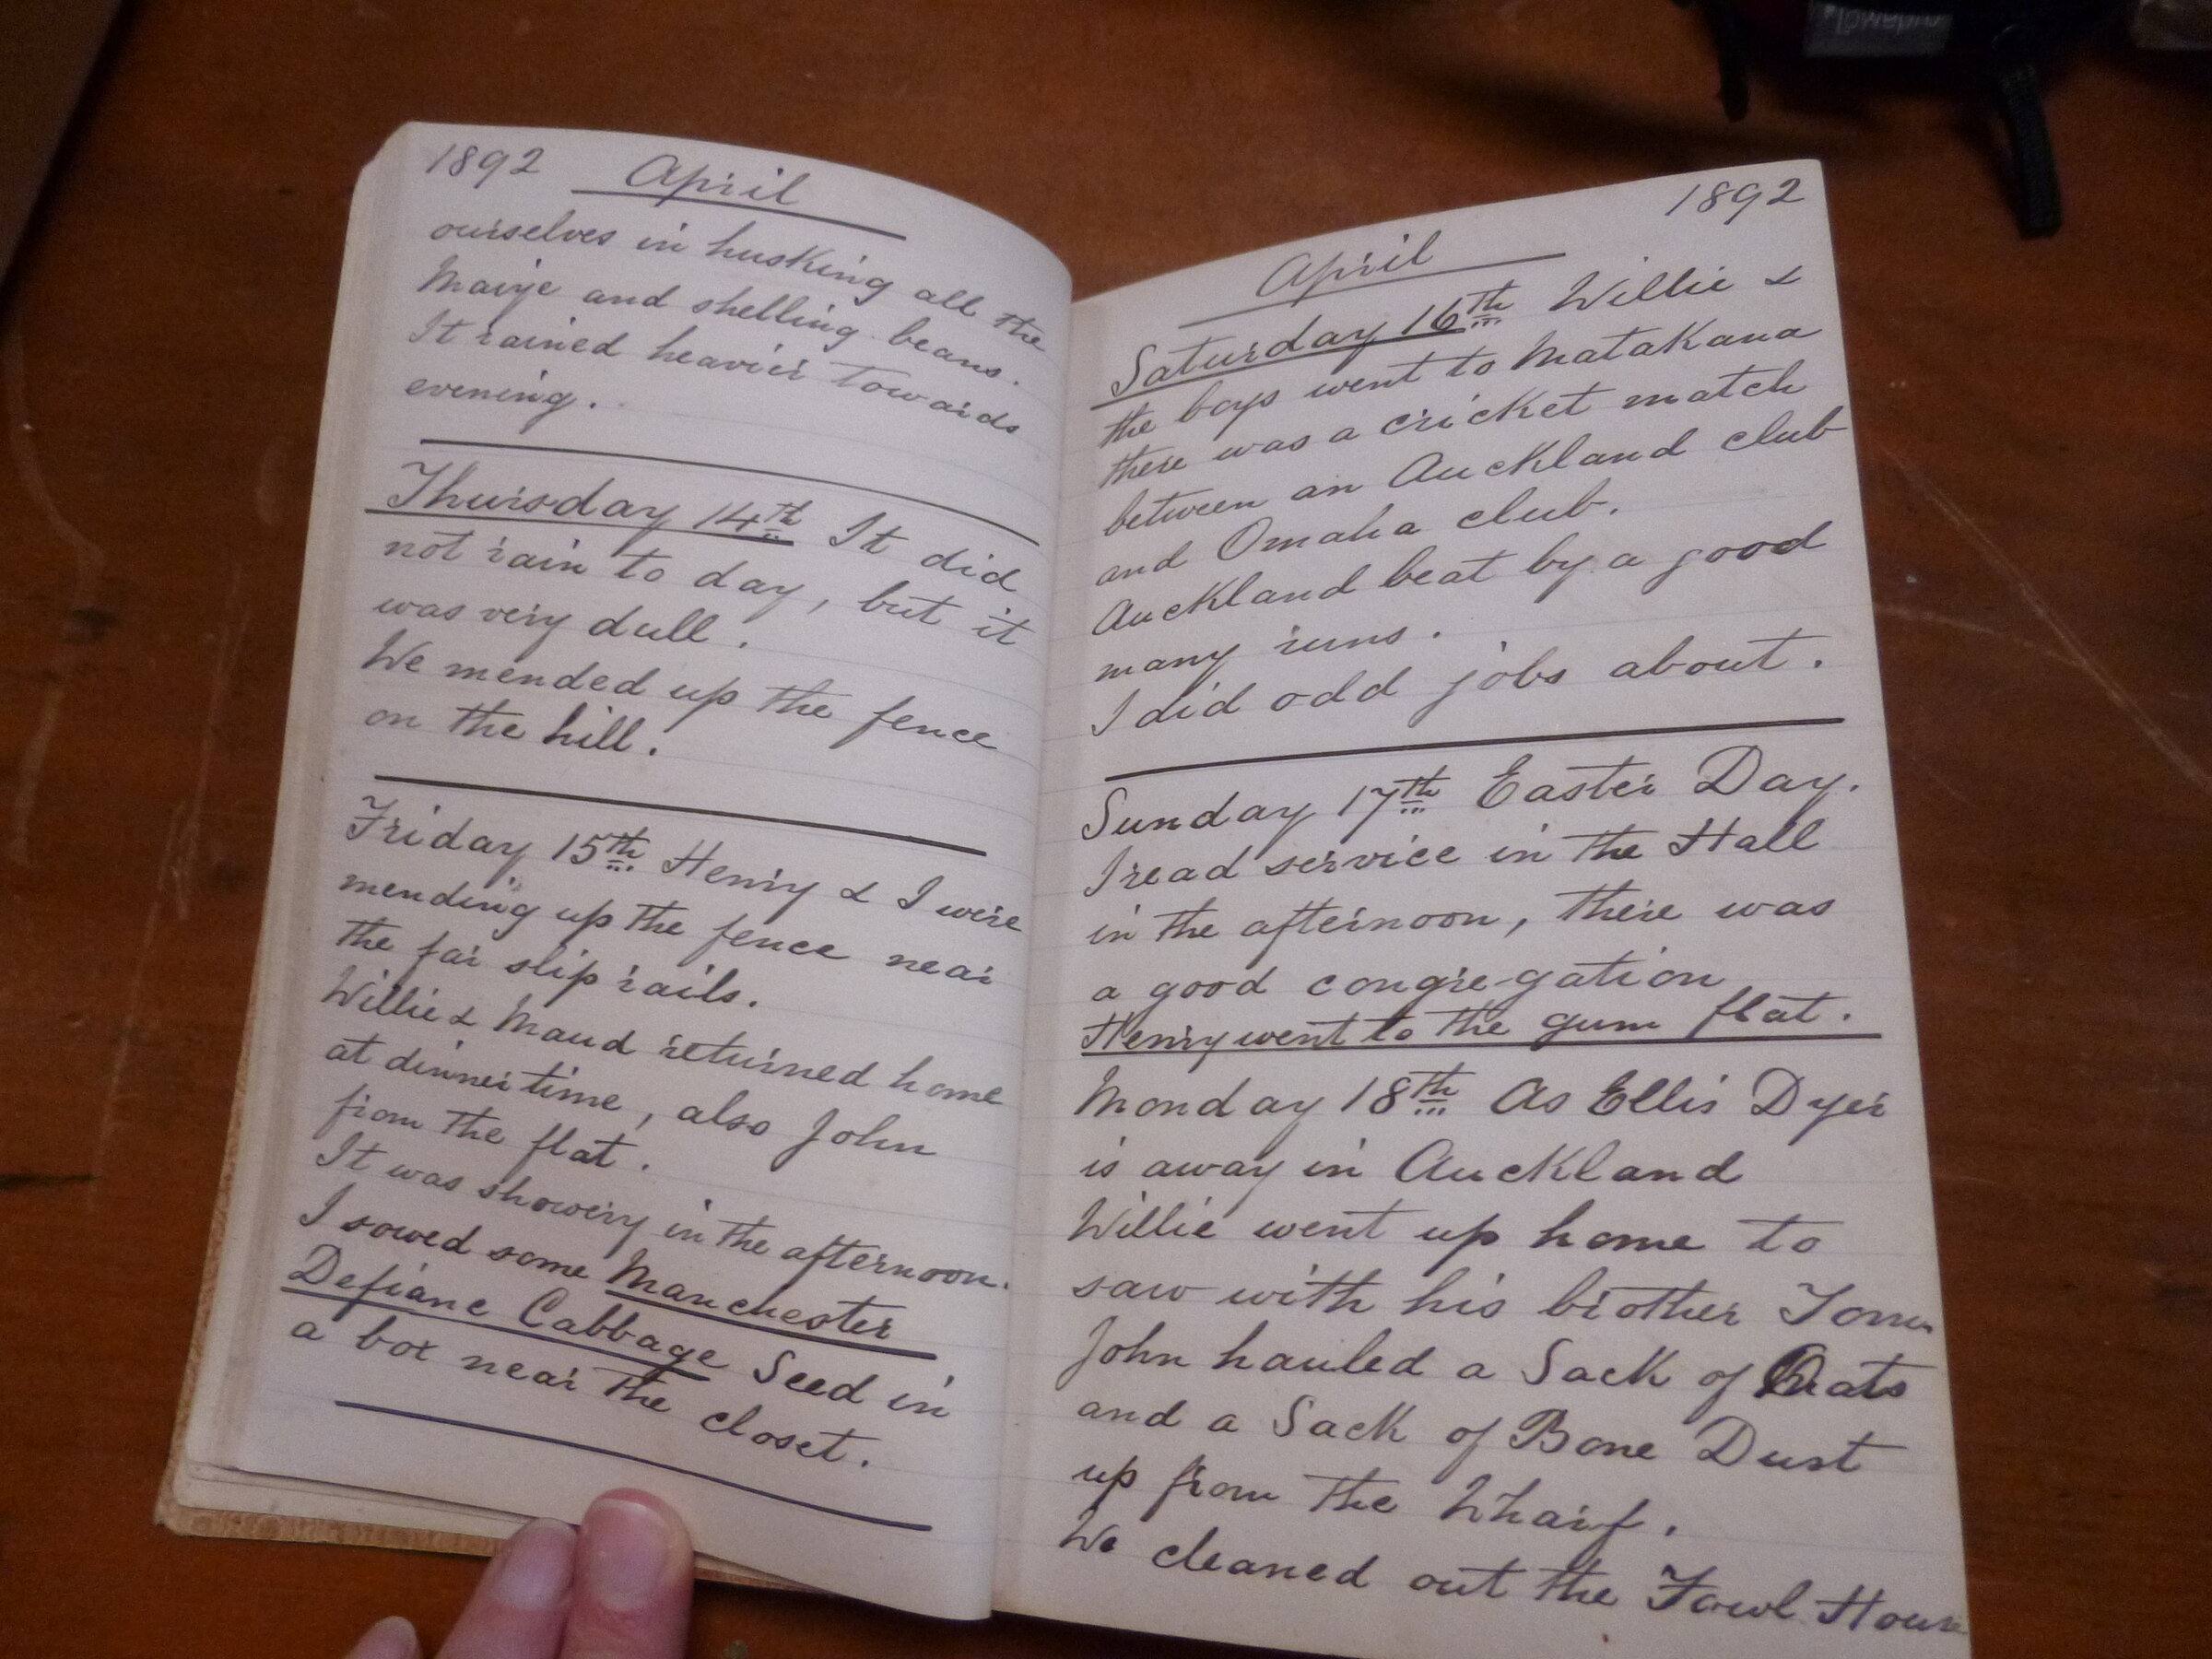 1892 April
ourselves in husking all the
Maize and shelling beans.
It rained heavier towards
evening.
Thursday 14th It did
not rain to day, but it
was very dull.
We mended up the fence
on the hill.
Friday 15th Henry & I were
mending up the fence near
the far slip rails.
Willie & Maud returned home
at dinner time, also John
from the flat.
It was showery in the afternoon.
I sowed some Manchester
Defianc Cabbage Seed in
a box near the closet.
1892
April
Saturday 16th Willie &
the boys went to Matakana
there was a cricket match
between an Auckland club
and Omaha club.
Auckland beat by a good
many runs.
I did odd jobs about.
Sunday 17th Easter Day.
I read service in the Hall
in the afternoon, there was
a good congregation
Henry went to the gum flat.
Monday 18th As Ellis Dyer
is away in Auckland
Willie went up home to
saw with his brother Tom
John hauled a Sack of Oats
and a Sack of Bone Dust
up from the Wharf.
We cleaned out the Fowl House